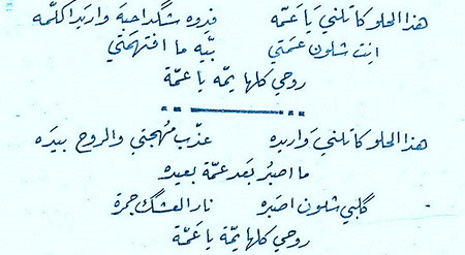 هذا الحلو كاتلني يا عمّه فدوه شگد احبّه واريد اكلّمه
انت شلون عمّتي بيّه ما افتهمتي
روحي كلها يمّه يا عمّة
هذا الحلو كاتلني واريده عذّب مُهجتي والروح بيدَه
ما اصبُر بَعد عمّة بعيده
گلبي شلون اصبره نار العشگ جمرة
روحي كلها يمّة يا عَمّة